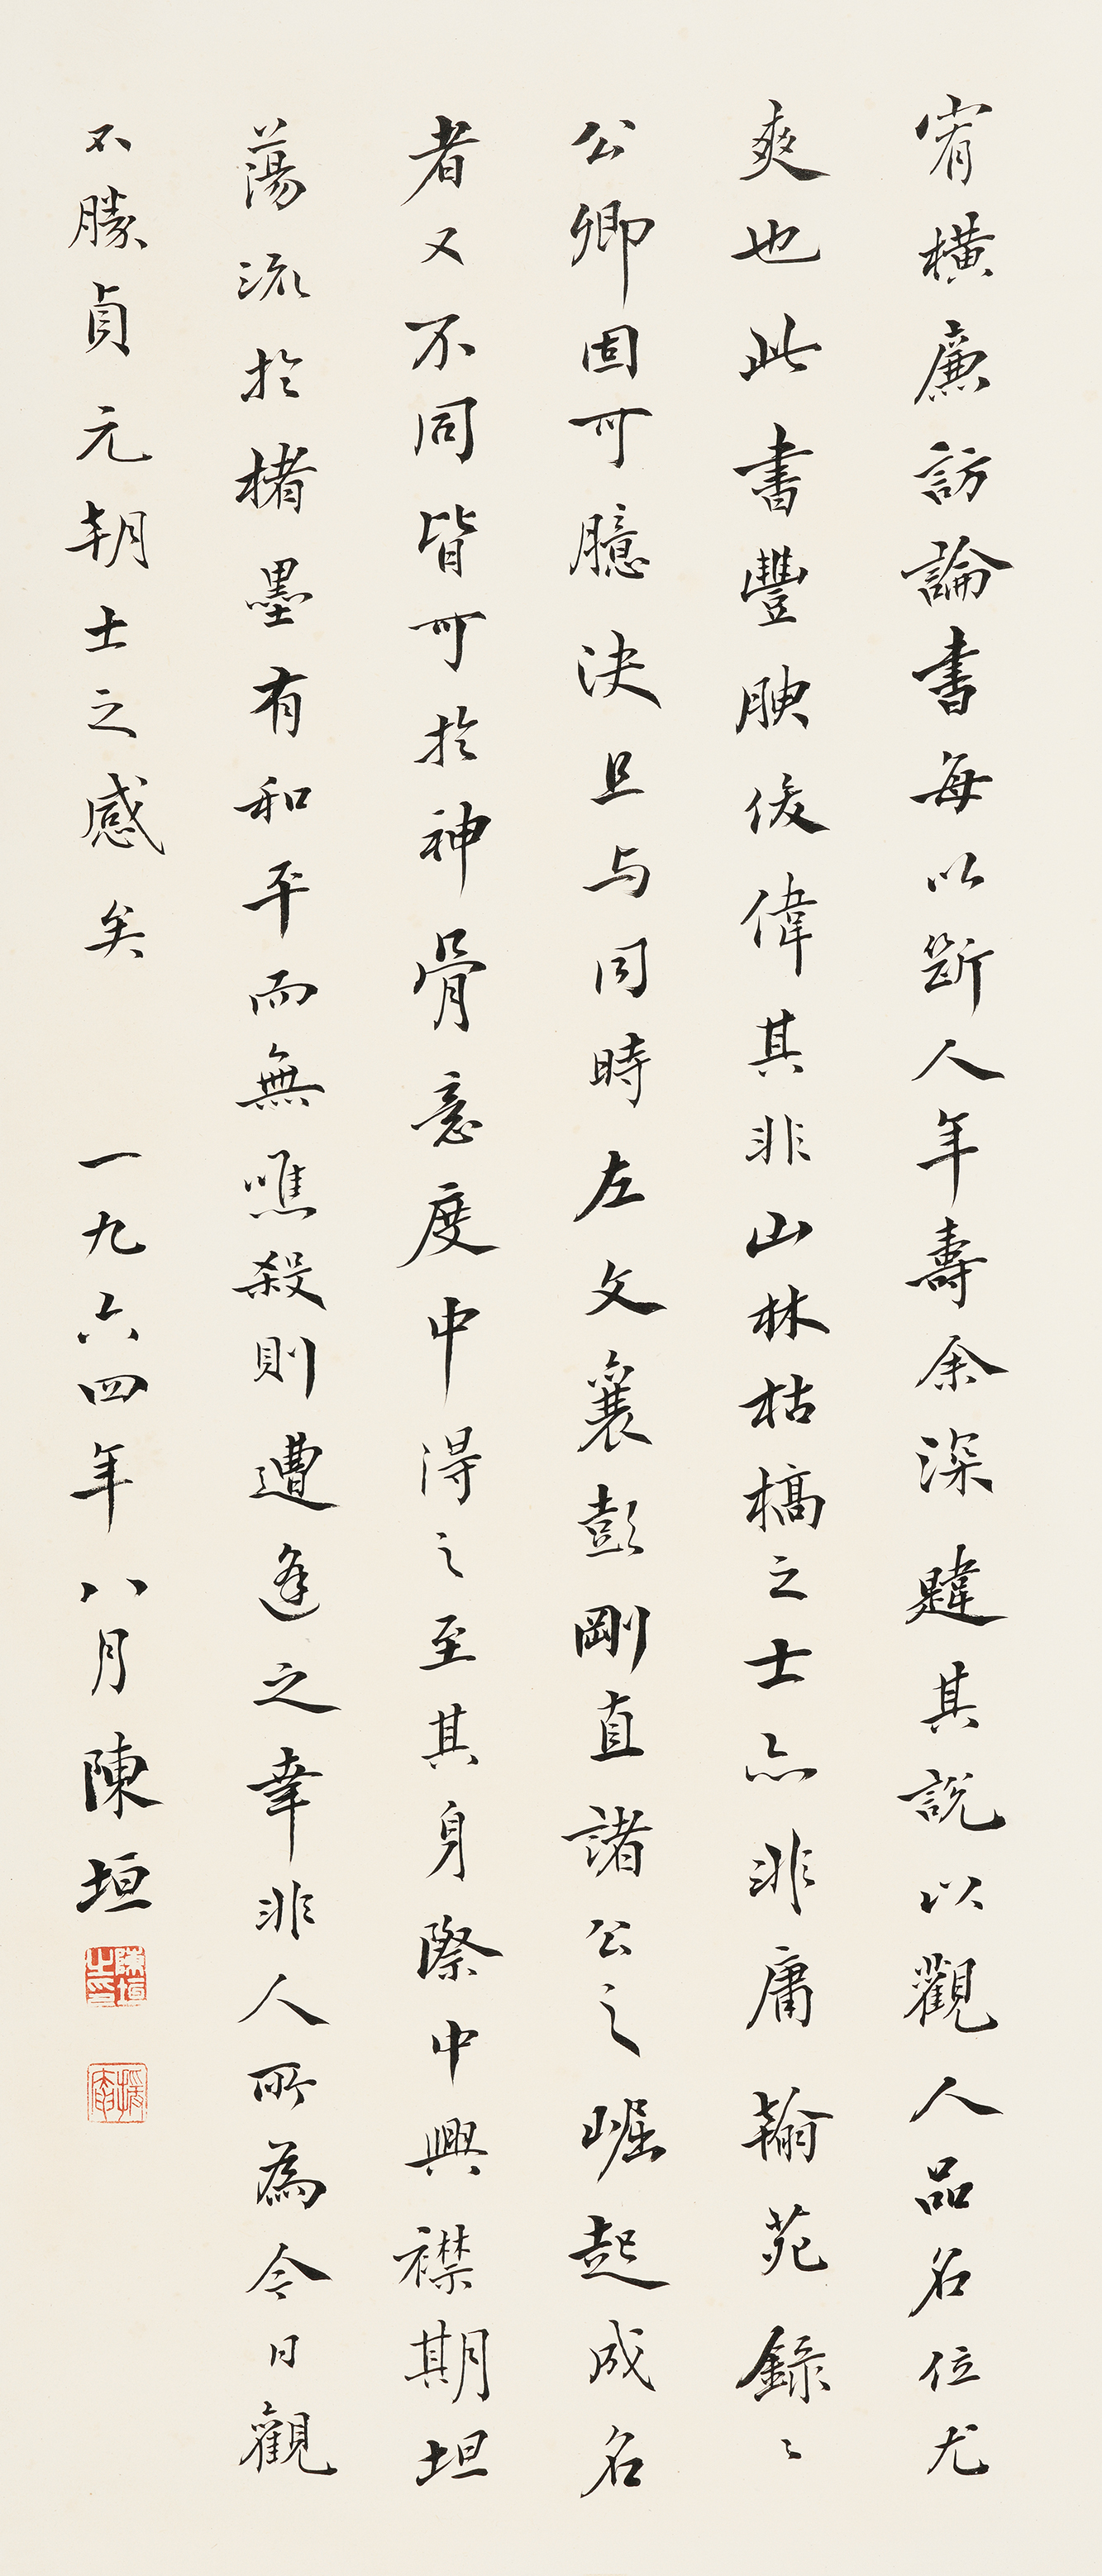 宥橫廉訪論書每以斷人年壽余深韙其說以觀人品名位尤
爽也此書豐腴俊偉其非山林枯槁之士亦非庸翰苑錄〻
公卿固可臆決且与同時左文襄彭剛直諸公之崛起成名
者又不同皆可於神骨意度中得之至其身際中興襟期坦
蕩流於楮墨有和平而無噍殺則遭逢之幸非人所為今日觀
不勝貞元朝士之感矣 一九六四年八月陳垣
陳垣之印
援庵